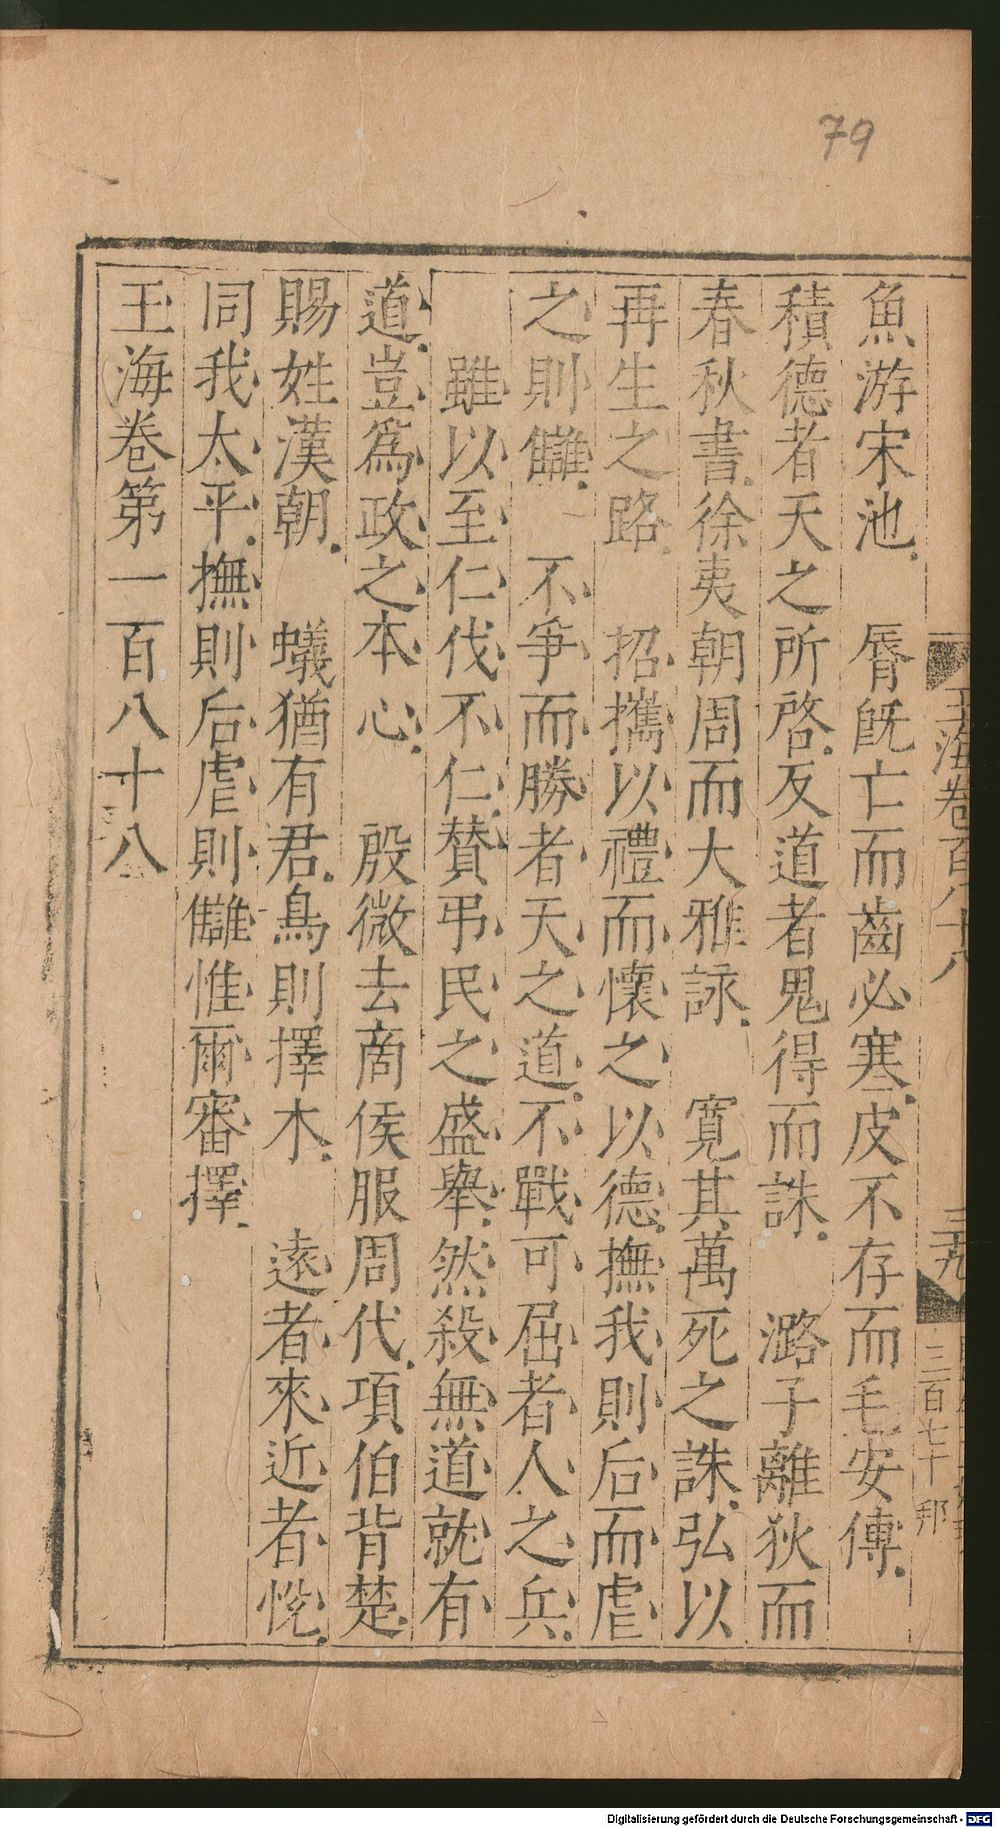 79
王海卷百八十八
三十九
三百七十 邦
魚游宋池 脣旣亡而齒必寒皮不存而毛安傳
積德者天之所啓反道者鬼得而誅 潞子離狄而
春秋書徐夷朝周而大雅詠 寛其萬死之誅弘以
再生之路 招攜以禮而懷之以德撫我則后而虐
之則讎 不爭而勝者天之道不戰可屈者人之兵
雖以至仁伐不仁贊弔民之盛舉然殺無道就有
道豈爲政之本心 殷微去商侯服周代項伯背楚
賜姓漢朝 蟻猶有君鳥則擇木 遠者來近者悅
同我太平撫則后虐則讎惟爾審擇
玉海卷第一百八十八
Digitalisierung gefördert durch die Deutsche Forschungsgemeinschaft - DFG